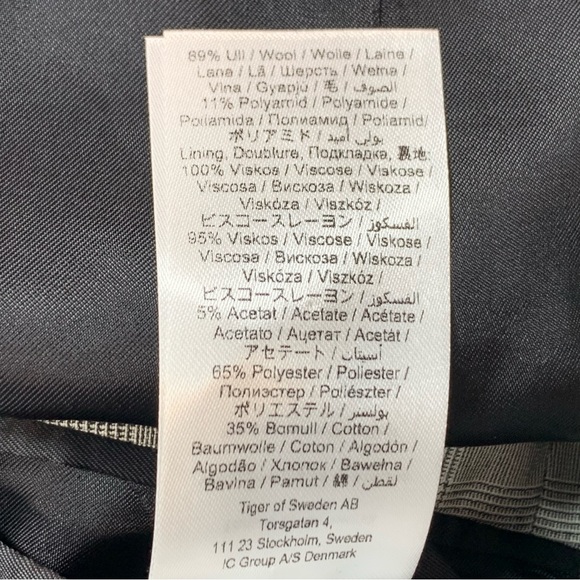 89% Ull / Wool / Wolle / Laine /
Lana / Lã / Шерсть / Wełna /
Vlna / Gyapjú / 毛 / الصوف /
11% Polyamid / Polyamide /
Poliamida / Полиамид / Poliamid/
ポリアミド / بولي أميد /
Lining, Doublure, Подкладка, 裏地:
100% Viskos / Viscose / Viskose /
Viscosa / Вискоза / Wiskoza /
Viskóza / Viszkóz /
ビスコースレーヨン / الفسكوز /
95% Viskos / Viscose / Viskose /
Viscosa / Вискоза / Wiskoza /
Viskóza / Viszkóz /
ビスコースレーヨン / الفسكوز /
5% Acetat / Acetate / Acétate /
Acetato / Ацетат / Acetát /
アセテート / أسيتات /
65% Polyester / Poliester /
Полиэстер / Poliészter /
ポリエステル / بولستر /
35% Bomull / Cotton /
Baumwolle / Coton / Algodón /
Algodão / Хлопок / Bawełna /
Bavlna / Pamut / 綿 / لقطن /
Tiger of Sweden AB
Torsgatan 4,
111 23 Stockholm, Sweden
IC Group A/S Denmark